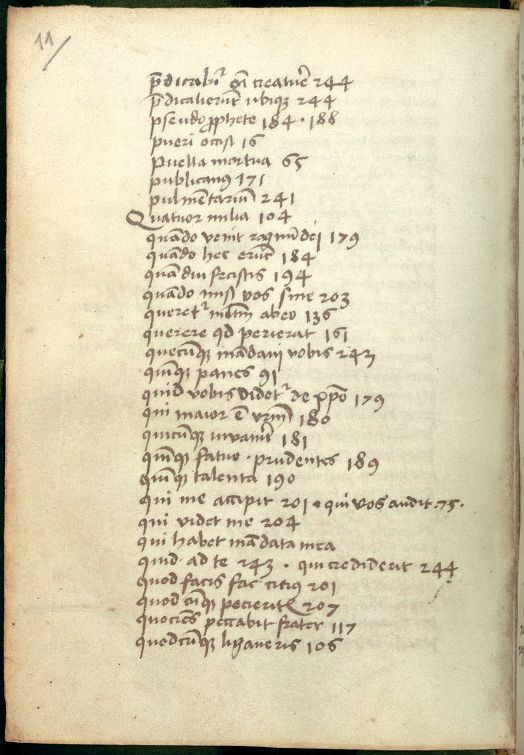 11
p̄dicabit̃ om̄i creature 244
p̄dicauerũt ubiqȝ 244
pseudo ꝓphete 184 · 188
pueri occisi 16
Puella mortua 65
publicanꝯ 171
pulmentariũ 241
Quatuor milia 104
quãdo venit regnũ dei 179
quãdo hec erũt 184
quãdiu fecistis 194
quãdo misi vos sine 203
queret᷑ multũ ab eo 136
querere qd perierat 161
quecũqȝ mãdaui vobis 243
quĩqȝ panes 91
quid vobis videt᷑ de xp̄o 179
qui maior ē vr̄m 180
quicũqȝ iurauerit 181
quĩqȝ fatue · prudentes 189
quĩqȝ talenta 190
qui me accipit 201 · qui vos audit · 75 ·
qui videt me 204
qui habet mãdata mea
quid ad te 243 · qui crediderit 244
quod facis fac citiꝯ 201
quodcũqȝ petierit 207
quociẽs peccabit frater 117
quodcũqȝ ligaueris 106